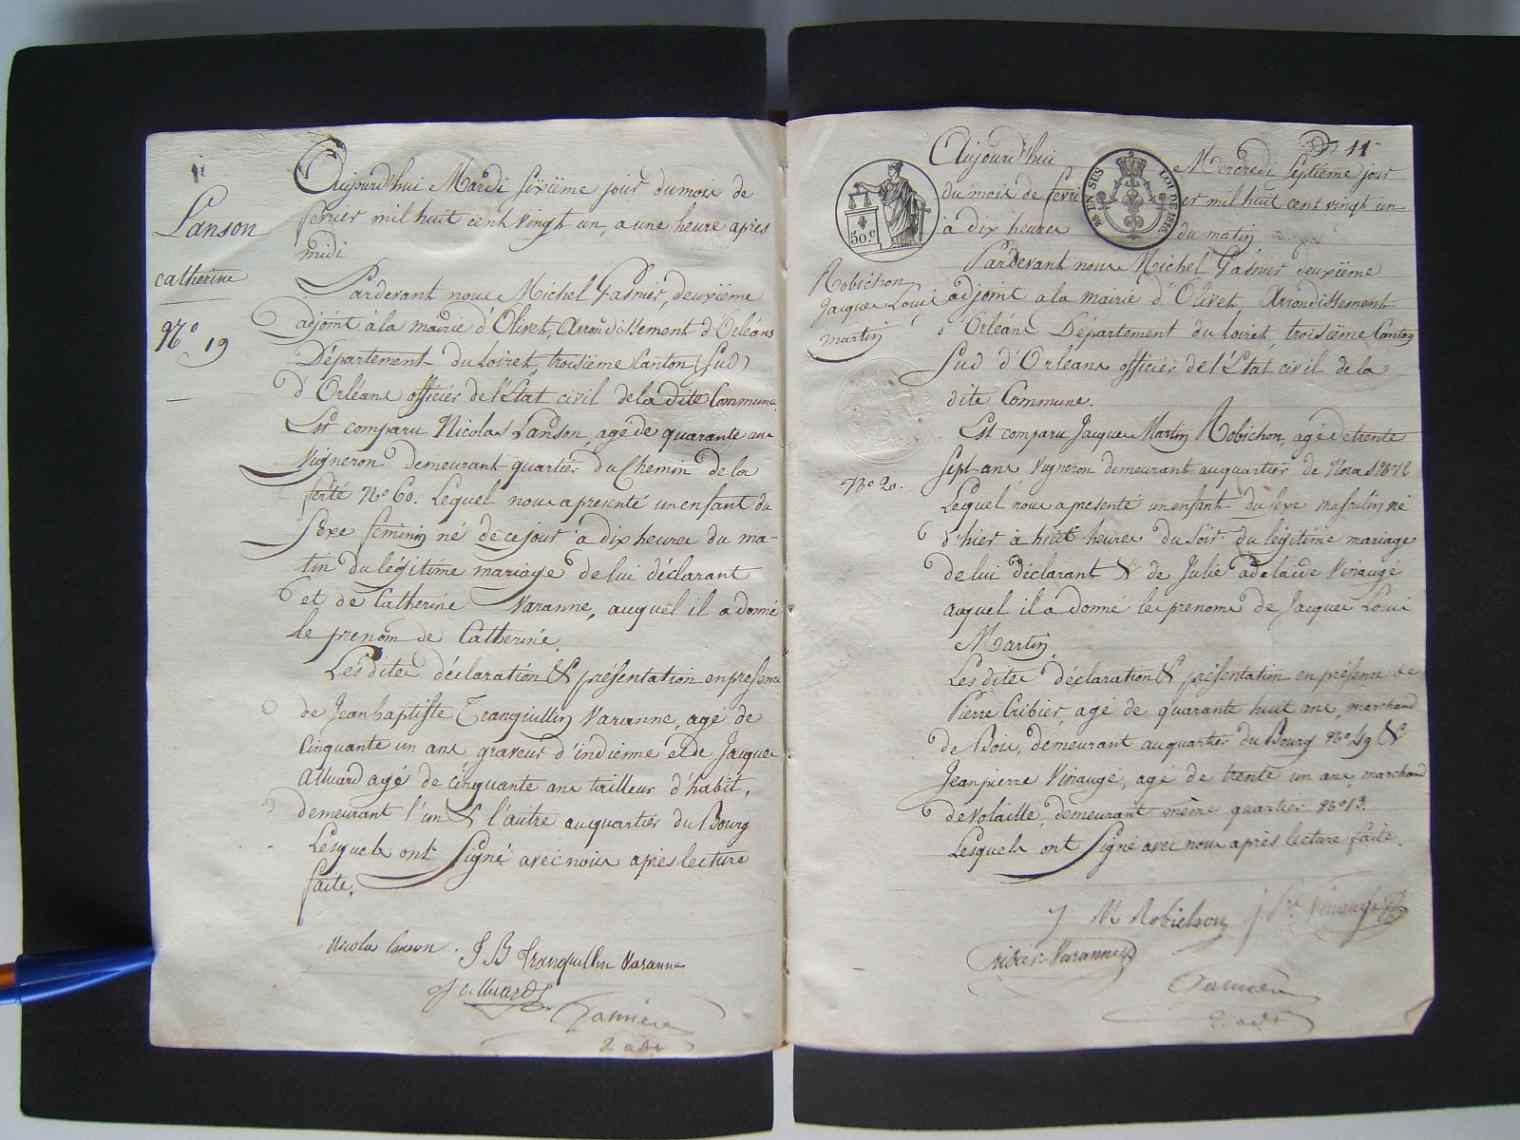 Lanson
catherine
N.o 19
Aujourd'hui Mardi sixième jour du mois de
fevrier mil huit cent vingt un, a une heure après
midi
Pardevant nous Michel Pasnier, deuxième
adjoint à la mairie d'Olivet, Arrondissement d'Orléans
Département du Loiret, troisième Canton (Sud)
d'Orléans officier de l'Etat civil de la dite Commune.
Est comparu Nicolas Lanson, agé de quarante ans
Vigneron demeurant quartier du Chemin de la
ferté N.o 60. Lequel nous a presenté un enfant du
sexe feminin né de ce jour à dix heures du ma-
tin du légitime mariage de lui déclarant
et de Catherine Varanne, auquel il a donné
le prenom de Catherine.
Lesdites déclaration & présentation en presence
de Jean baptiste Tranquillin Varanne, agé de
Cinquante un ans graveur d'indienne et de Jacques
Alluard agé de cinquante ans tailleur d'habit,
demeurant l'un & l'autre au quartier du Bourg
Lesquels ont Signé avec nous après lecture
faite.
nicolas lanson. J B Tranquillin Varanne
J alluard
2 adj
11
Robichon
Jacques Louis
martin
N.o 20.
50 c
EN SUS
LOI DE 1816
Aujourd'hui Mercredi Septieme jour
du mois de fevrier mil huit cent vingt un
à dix heures du matin
Pardevant nous Michel Pasnier deuxième
adjoint a la mairie d'Olivet, Arrondissement
d'Orléans Département du Loiret, troisième Canton
Sud d'Orléans officier de l'Etat civil de la
dite Commune.
Est comparu Jacques Martin Robichon, agé de trente
sept ans Vigneron demeurant au quartier de
Lequel nous a presenté un enfant du sexe masculin né
d'hier à huit heures du soir du légitime mariage
de lui déclarant & de Julie adelaide Vinaugé
auquel il a donné les prenoms de Jacques Louis
Martin.
Lesdites déclaration & présentation en présence de
Pierre Cribier, agé de quarante huit ans, marchand
de Bois, demeurant au quartier du Bourg N.o 49 &
Jean pierre Vinaugé, agé de trente un ans, marchand
de volaille, demeurant même quartier N.o 13.
Lesquels ont Signé avec nous après lecture faite.
J M Robichon
Cribier Varanne
2. adj